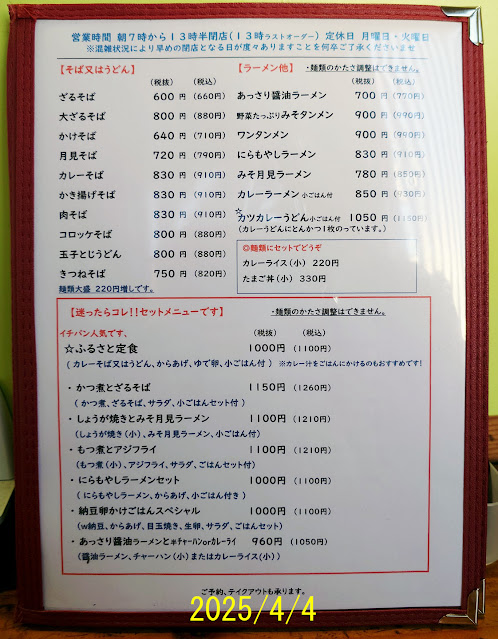 営業時間 朝7時から13時半閉店(13時ラストオーダー) 定休日 月曜日・火曜日
※混雑状況により早めの閉店となる日が度々ありますことを何卒ご了承くださいませ
【そば又はうどん】
(税抜) (税込)
ざるそば 600円 (660円)
大ざるそば 800円 (880円)
かけそば 640円 (710円)
月見そば 720円 (790円)
カレーそば 830円 (910円)
かき揚げそば 830円 (910円)
肉そば 830円 (910円)
コロッケそば 800円 (880円)
玉子とじうどん 800円 (880円)
きつねそば 750円 (820円)
麺類大盛 220円増しです。
【ラーメン他】 ・麺類のかたさ調整はできません。
(税抜) (税込)
あっさり醤油ラーメン 700円 (770円)
野菜たっぷりみそタンメン 900円 (990円)
ワンタンメン 900円 (990円)
にらもやしラーメン 830円 (910円)
みそ月見ラーメン 780円 (850円)
カレーラーメン 小ごはん付 850円 (930円)
☆カツカレーうどん小ごはん付 1050円 (1150円)
(カレーうどんにとんかつ1枚のっています。)
◎麺類にセットでどうぞ
カレーライス(小) 220円
たまご丼(小) 330円
【迷ったらコレ!!セットメニューです】 ・麺類のかたさ調整はできません。
イチバン人気です、 (税抜) (税込)
☆ふるさと定食 1000円 (1100円)
(カレーそば又はうどん、からあげ、ゆで卵、小ごはん付) ※カレー汁をごはんにかけるのもおすすめです!
・かつ煮とざるそば 1150円 (1260円)
(かつ煮、ざるそば、サラダ、小ごはんセット付)
・しょうが焼きとみそ月見ラーメン 1100円 (1210円)
(しょうが焼き(小)、みそ月見ラーメン、小ごはん付)
・もつ煮とアジフライ 1100円 (1210円)
(もつ煮(小)、アジフライ、サラダ、ごはんセット付)
・にらもやしラーメンセット 1000円 (1100円)
(にらもやしラーメン、からあげ、小ごはん付き)
・納豆卵かけごはんスペシャル 1000円 (1100円)
(w納豆、からあげ、目玉焼き、生卵、サラダ、ごはんセット)
・あっさり醤油ラーメンと半チャーハンorカレーライ 960円 (1050円)
(醤油ラーメン、チャーハン(小)またはカレーライス(小))
ご予約、テイクアウトも承ります。
2025/4/4